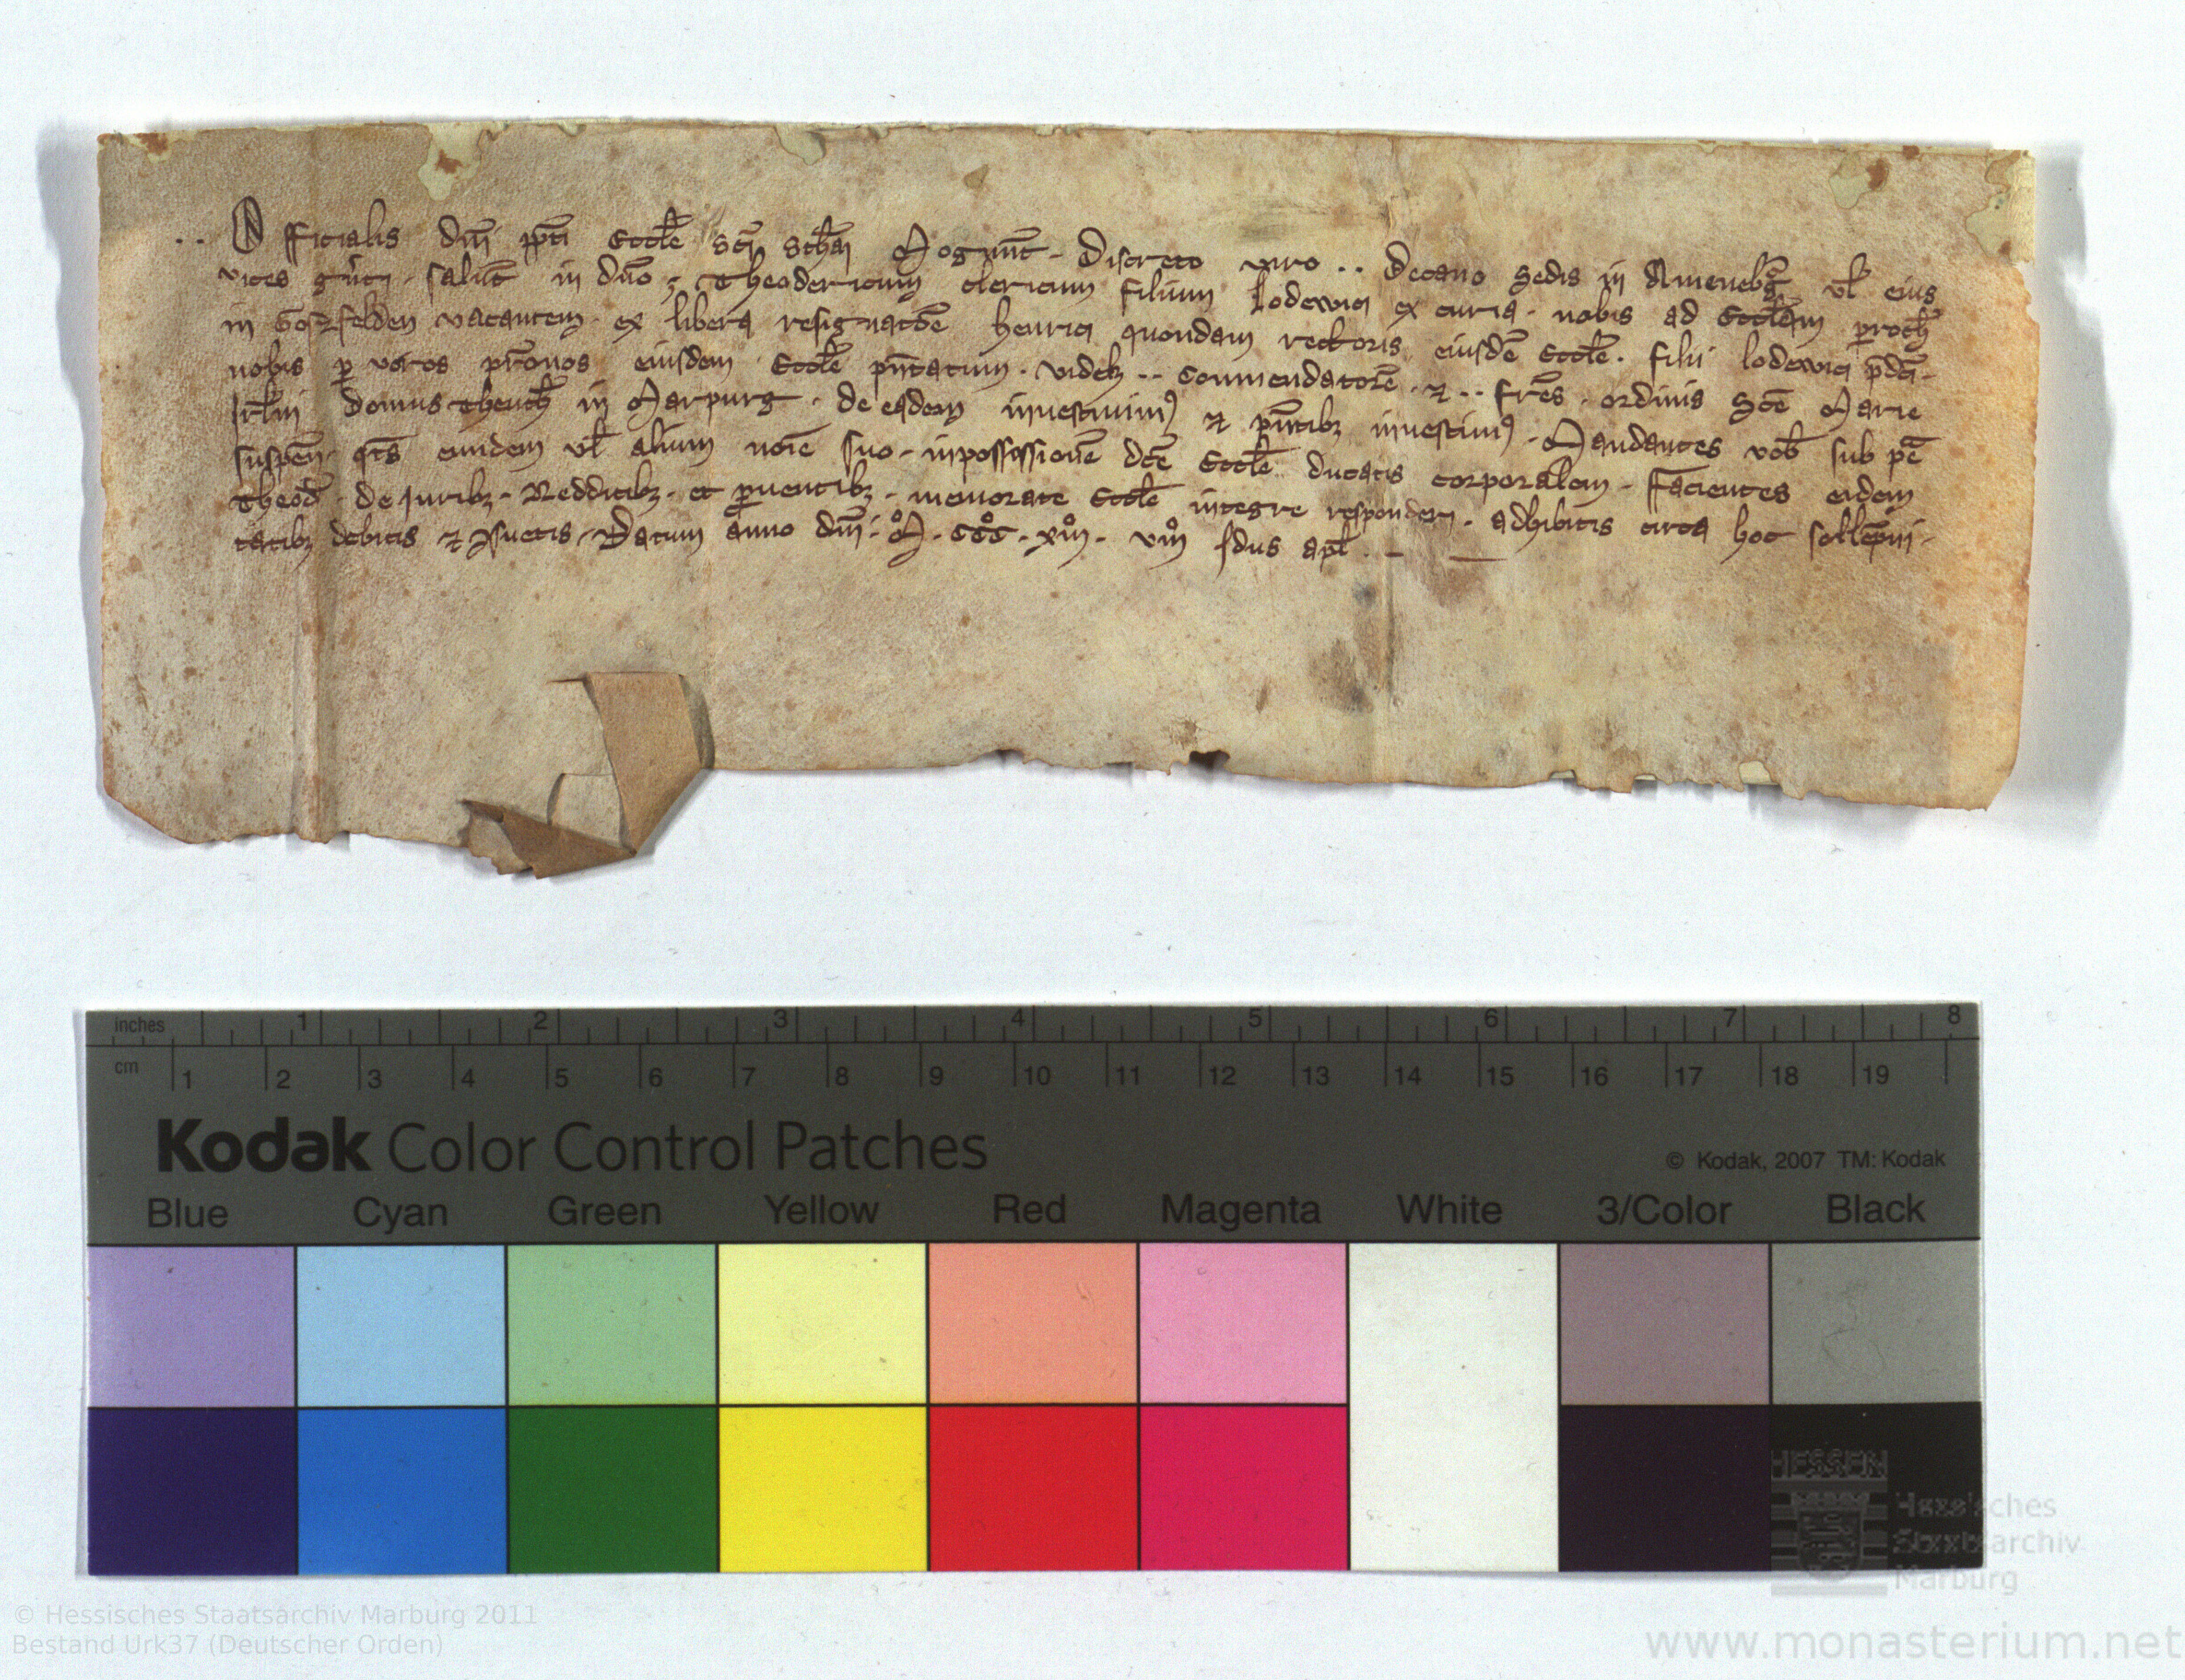 .. Officialis dnj ppti Eccle scj Stphaj Mogunt. Discreto viro .. Decano sedis in Ameneb'g vl eius
vices g'nti. salut in dno. Theodericum clericum filium lodewici ex curia. nobis ad Eccliam proch
in Gozfelden vacantem. ex libera resignatoe henrici quondam rectoris eiusde Eccle. filii lodewici pdci.
nobis p veros pronos eiusdem Eccle pntatum. videlz .. Commendatore. et .. fres. ordinis Sce Marie
Jrlm Domus theuth in Marpurg. de eadem inuestiuim9 et pntibz inuestim9. Mandantes vob sub pe
suspen. qts eundem vl alium noie suo. inpossessione dce Eccle ducatis corporalem. Facientes eidem
Theod. de Juribz. Redditibz. et puentibz. memorate Eccle integre responderi. adhibitis circa hoc sollepni-
tatibz debitis et 9suetis. Datum anno dnj. M. CCC. xiij. viij jdus apl.
inches 1 2 3 4 5 6 7 8
cm 1 2 3 4 5 6 7 8 9 10 11 12 13 14 15 16 17 18 19
Kodak Color Control Patches
© Kodak, 2007 TM: Kodak
Blue Cyan Green Yellow Red Magenta White 3/Color Black
HESSEN
Hessisches
Staatsarchiv
Marburg
© Hessisches Staatsarchiv Marburg 2011
Bestand Urk37 (Deutscher Orden)
www.monasterium.net